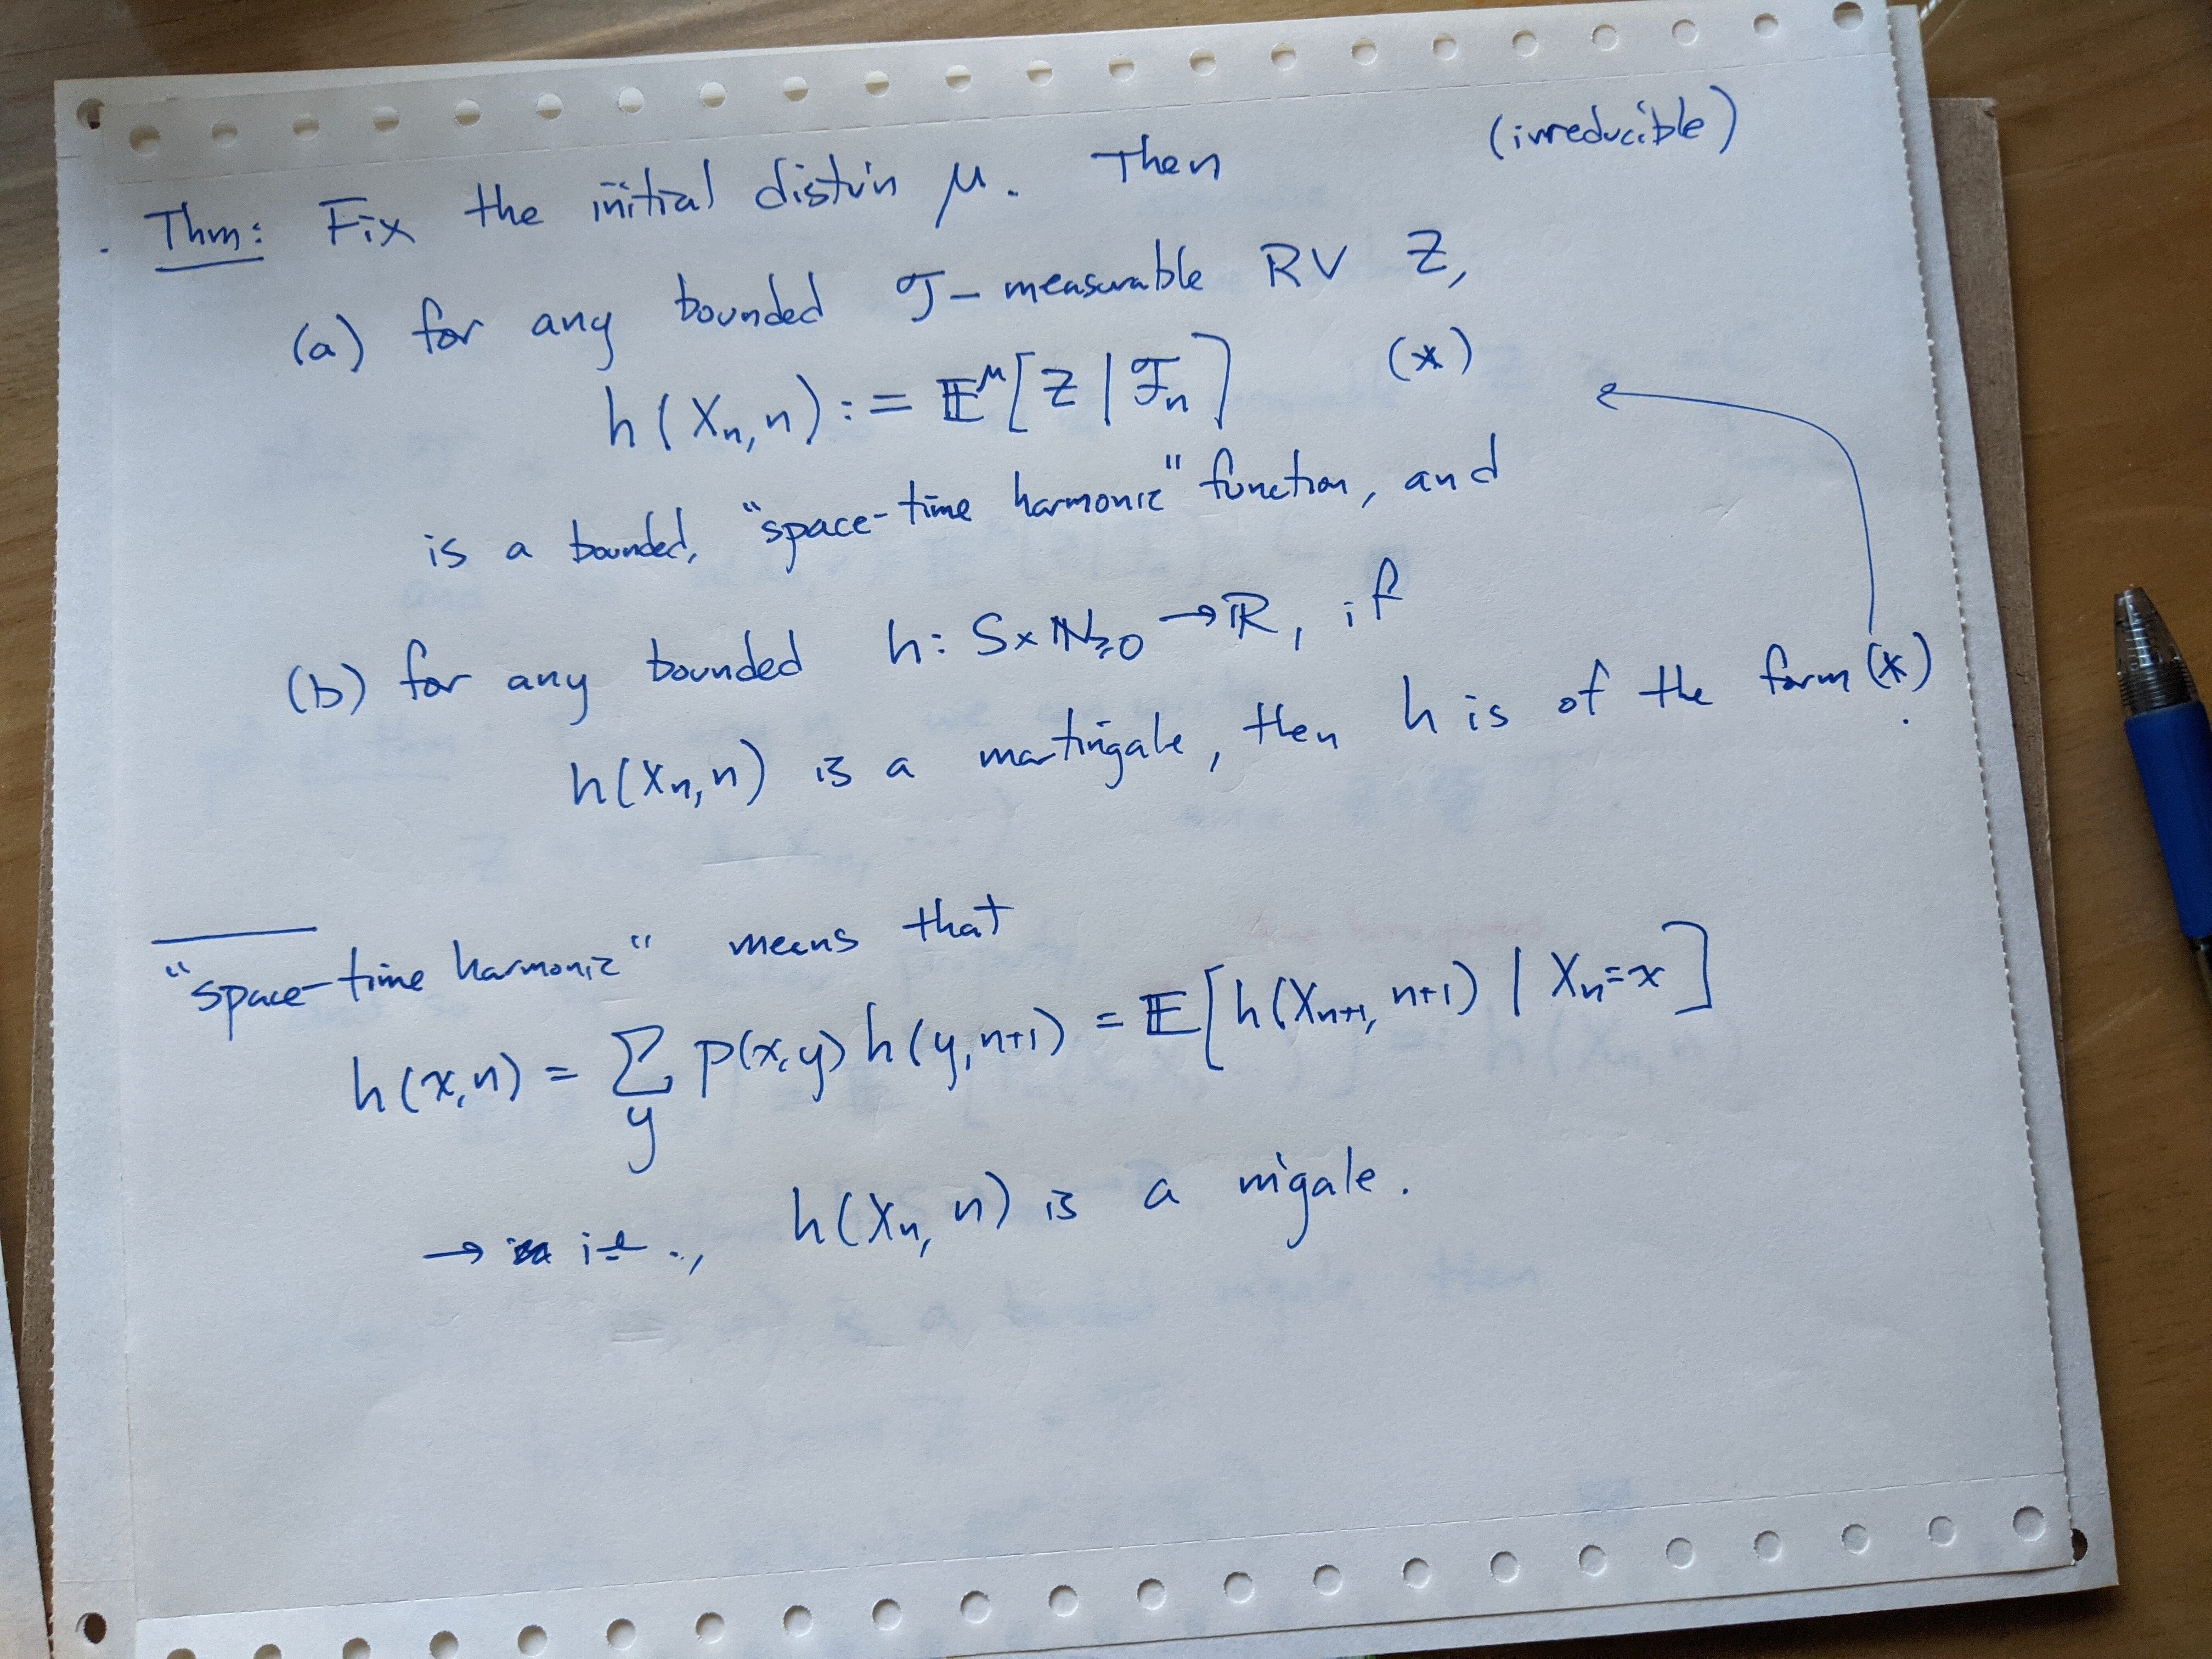 (irreducible)
Thm: Fix the initial distr'n μ. Then
(a) for any bounded 𝒯-measurable RV Z,
h(Xₙ,n) := 𝔼^μ[Z | ℱₙ] (*)
is a bounded, "space-time harmonic" function, and
(b) for any bounded h: S×ℕ≥0 → ℝ, if
h(Xₙ,n) is a martingale, then h is of the form (*).
"space-time harmonic" means that
h(x,n) = Σ_y p(x,y) h(y,n+1) = 𝔼[h(Xₙ₊₁, n+1) | Xₙ=x]
→ i.e., h(Xₙ, n) is a m'gale.